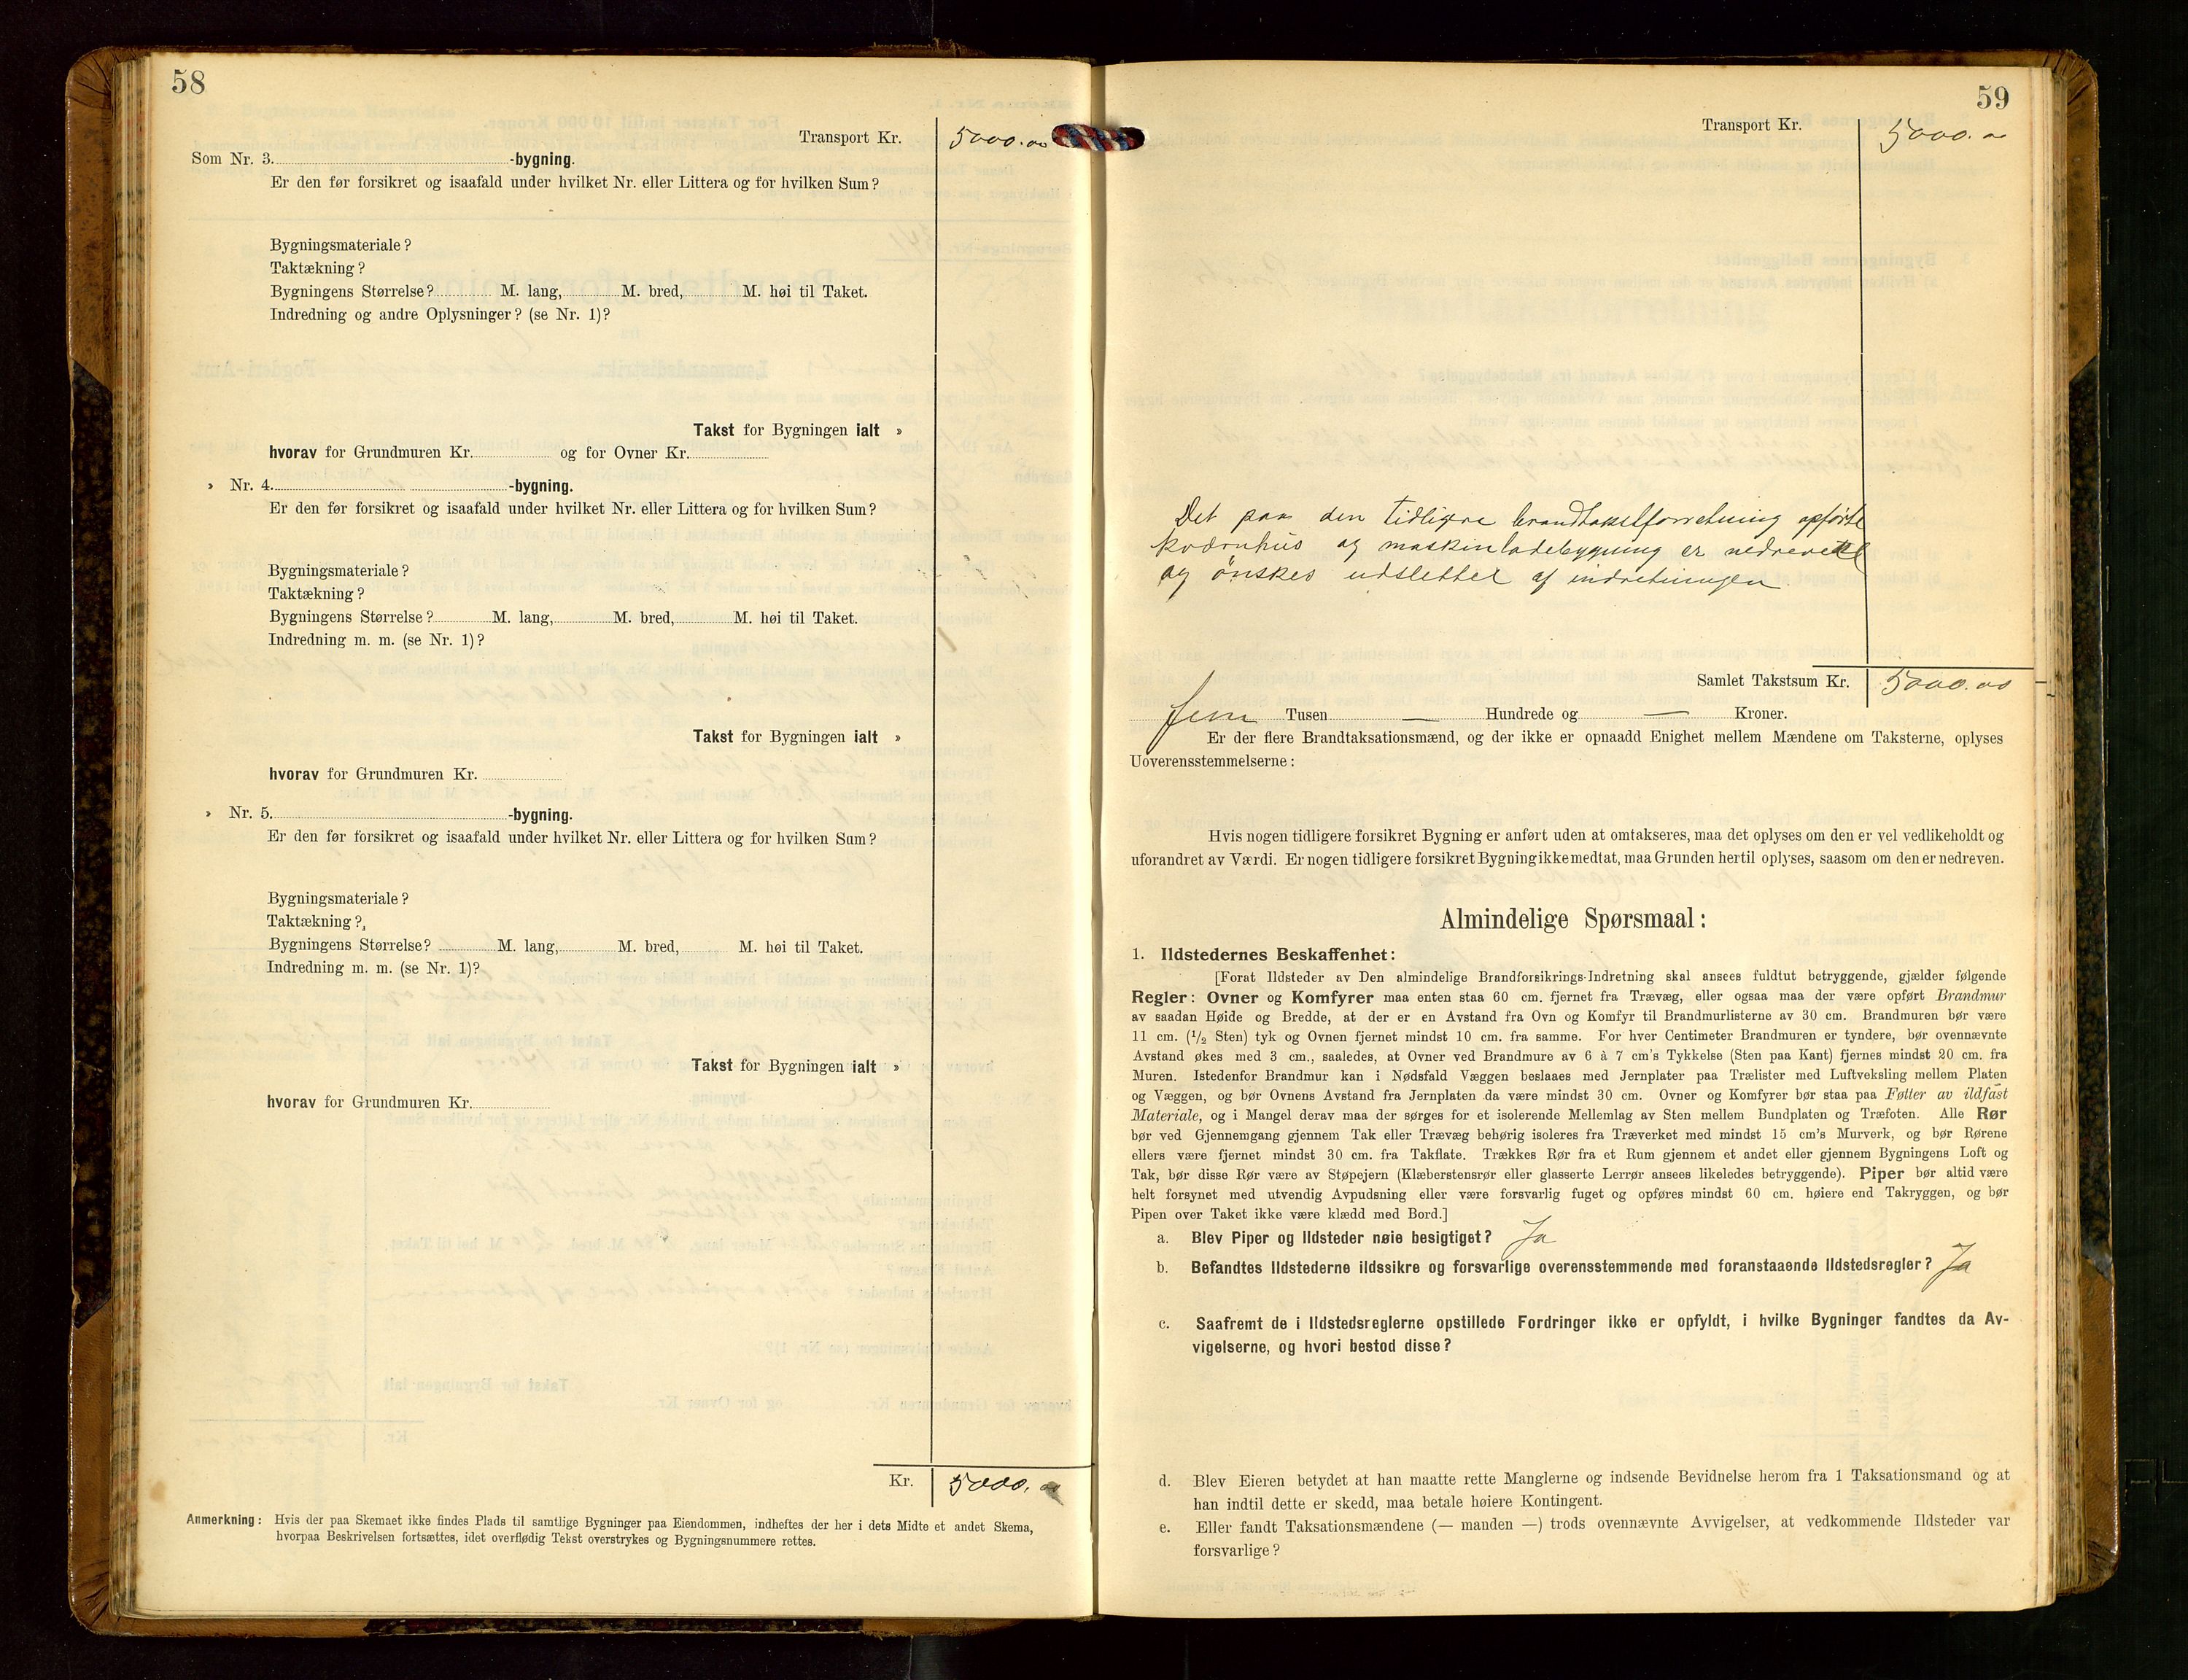 58
Transport Kr. 5000.00
Som Nr. 3. -bygning.
Er den før forsikret og isaafald under hvilket Nr. eller Littera og for hvilken Sum?
Bygningsmateriale?
Taktækning?
Bygningens Størrelse? M. lang, M. bred, M. høi til Taket.
Indredning og andre Oplysninger? (se Nr. 1)?
Takst for Bygningen ialt »
hvorav for Grundmuren Kr. og for Ovner Kr.
» Nr. 4. -bygning.
Er den før forsikret og isaafald under hvilket Nr. eller Littera og for hvilken Sum?
Bygningsmateriale?
Taktækning?
Bygningens Størrelse? M. lang, M. bred, M. høi til Taket.
Indredning m. m. (se Nr. 1)?
Takst for Bygningen ialt »
hvorav for Grundmuren Kr.
» Nr. 5. -bygning.
Er den før forsikret og isaafald under hvilket Nr. eller Littera og for hvilken Sum?
Bygningsmateriale?
Taktækning?
Bygningens Størrelse? M. lang, M. bred, M. høi til Taket.
Indredning m. m. (se Nr. 1)?
Takst for Bygningen ialt »
hvorav for Grundmuren Kr.
Kr. 5000.00
Anmerkning: Hvis der paa Skemaet ikke findes Plads til samtlige Bygninger paa Eiendommen, indheftes der her i dets Midte et andet Skema,
hvorpaa Beskrivelsen fortsættes, idet overflødig Tekst overstrykes og Bygningsnummere rettes.
59
Transport Kr. 5000.00
Det paa den tidligere brandtakstforretning opførte
kværnhus og maskinladebygning er nedrevet
og ønskes udslettet af indretningen
Samlet Takstsum Kr. 5000.00
fem Tusen — Hundrede og — Kroner.
Er der flere Brandtaksationsmænd, og der ikke er opnaadd Enighet mellem Mændene om Taksterne, oplyses
Uoverensstemmelserne:
Hvis nogen tidligere forsikret Bygning er anført uden at omtakseres, maa det oplyses om den er vel vedlikeholdt og
uforandret av Værdi. Er nogen tidligere forsikret Bygning ikke medtat, maa Grunden hertil oplyses, saasom om den er nedreven.
Almindelige Spørsmaal:
1. Ildstedernes Beskaffenhet:
[Forat Ildsteder av Den almindelige Brandforsikrings-Indretning skal ansees fuldtut betryggende, gjælder følgende
Regler: Ovner og Komfyrer maa enten staa 60 cm. fjernet fra Trævæg, eller ogsaa maa der være opført Brandmur
av saadan Høide og Bredde, at der er en Avstand fra Ovn og Komfyr til Brandmurlisterne av 30 cm. Brandmuren bør være
11 cm. (1/2 Sten) tyk og Ovnen fjernet mindst 10 cm. fra samme. For hver Centimeter Brandmuren er tyndere, bør ovennævnte
Avstand økes med 3 cm., saaledes, at Ovner ved Brandmure av 6 à 7 cm's Tykkelse (Sten paa Kant) fjernes mindst 20 cm. fra
Muren. Istedenfor Brandmur kan i Nødsfald Væggen beslaaes med Jernplater paa Trælister med Luftveksling mellem Platen
og Væggen, og bør Ovnens Avstand fra Jernplaten da være mindst 30 cm. Ovner og Komfyrer bør staa paa Føtter av ildfast
Materiale, og i Mangel derav maa der sørges for et isolerende Mellemlag av Sten mellem Bundplaten og Træfoten. Alle Rør
bør ved Gjennemgang gjennem Tak eller Trævæg behørig isoleres fra Træverket med mindst 15 cm's Murverk, og bør Rørene
ellers være fjernet mindst 30 cm. fra Takflate. Trækkes Rør fra et Rum gjennem et andet eller gjennem Bygningens Loft og
Tak, bør disse Rør være av Støpejern (Klæberstensrør eller glasserte Lerrør ansees likeledes betryggende). Piper bør altid være
helt forsynet med utvendig Avpudsning eller være forsvarlig fuget og opføres mindst 60 cm. høiere end Takryggen, og bør
Pipen over Taket ikke være klædd med Bord.]
a. Blev Piper og Ildsteder nøie besigtiget? Ja
b. Befandtes Ildstederne ildssikre og forsvarlige overensstemmende med foranstaaende Ildstedsregler? Ja
c. Saafremt de i Ildstedsreglerne opstillede Fordringer ikke er opfyldt, i hvilke Bygninger fandtes da Av-
vigelserne, og hvori bestod disse?
d. Blev Eieren betydet at han maatte rette Manglerne og indsende Bevidnelse herom fra 1 Taksationsmand og at
han indtil dette er skedd, maa betale høiere Kontingent.
e. Eller fandt Taksationsmændene (— manden —) trods ovennævnte Avvigelser, at vedkommende Ildsteder var
forsvarlige?